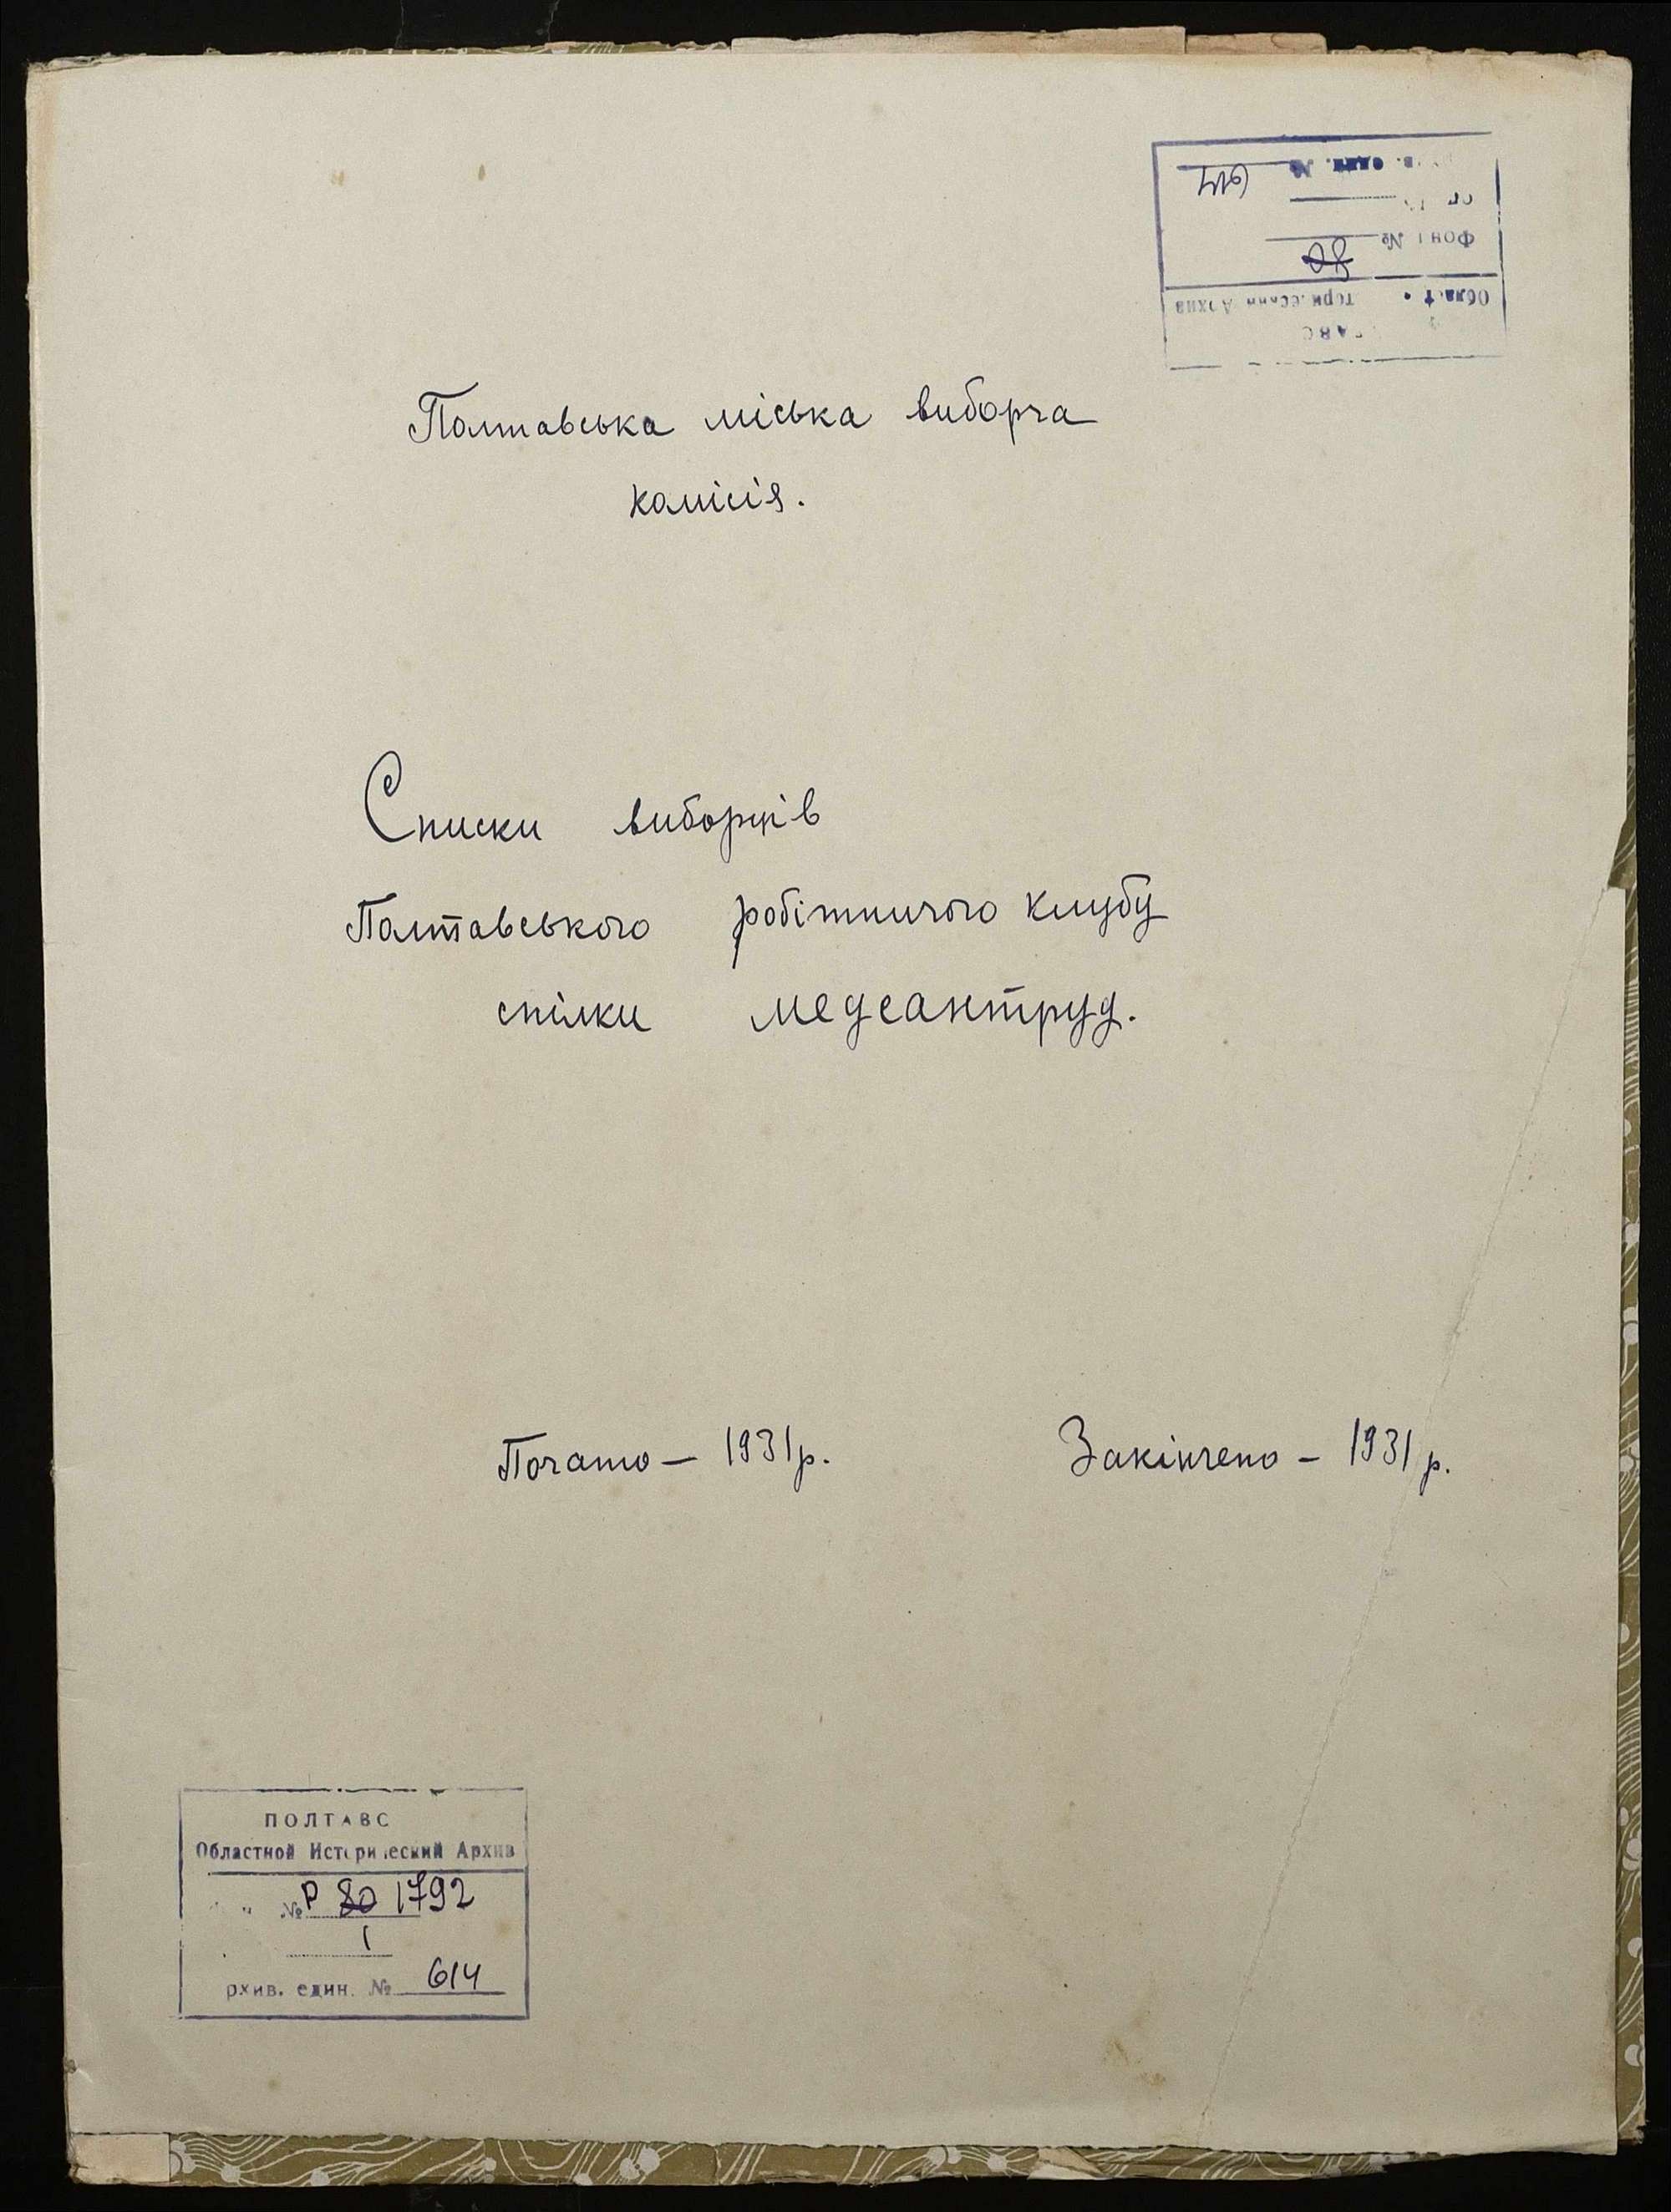 614
80
Полтавська міська виборча
комісія.
Списки виборців
Полтавського робітничого клубу
спілки медсантруд.
Почато – 1931 р. Закінчено – 1931 р.
ПОЛТАВС
Областной Исторический Архив
№ Р 80 1792
1
рхив. един. № 614